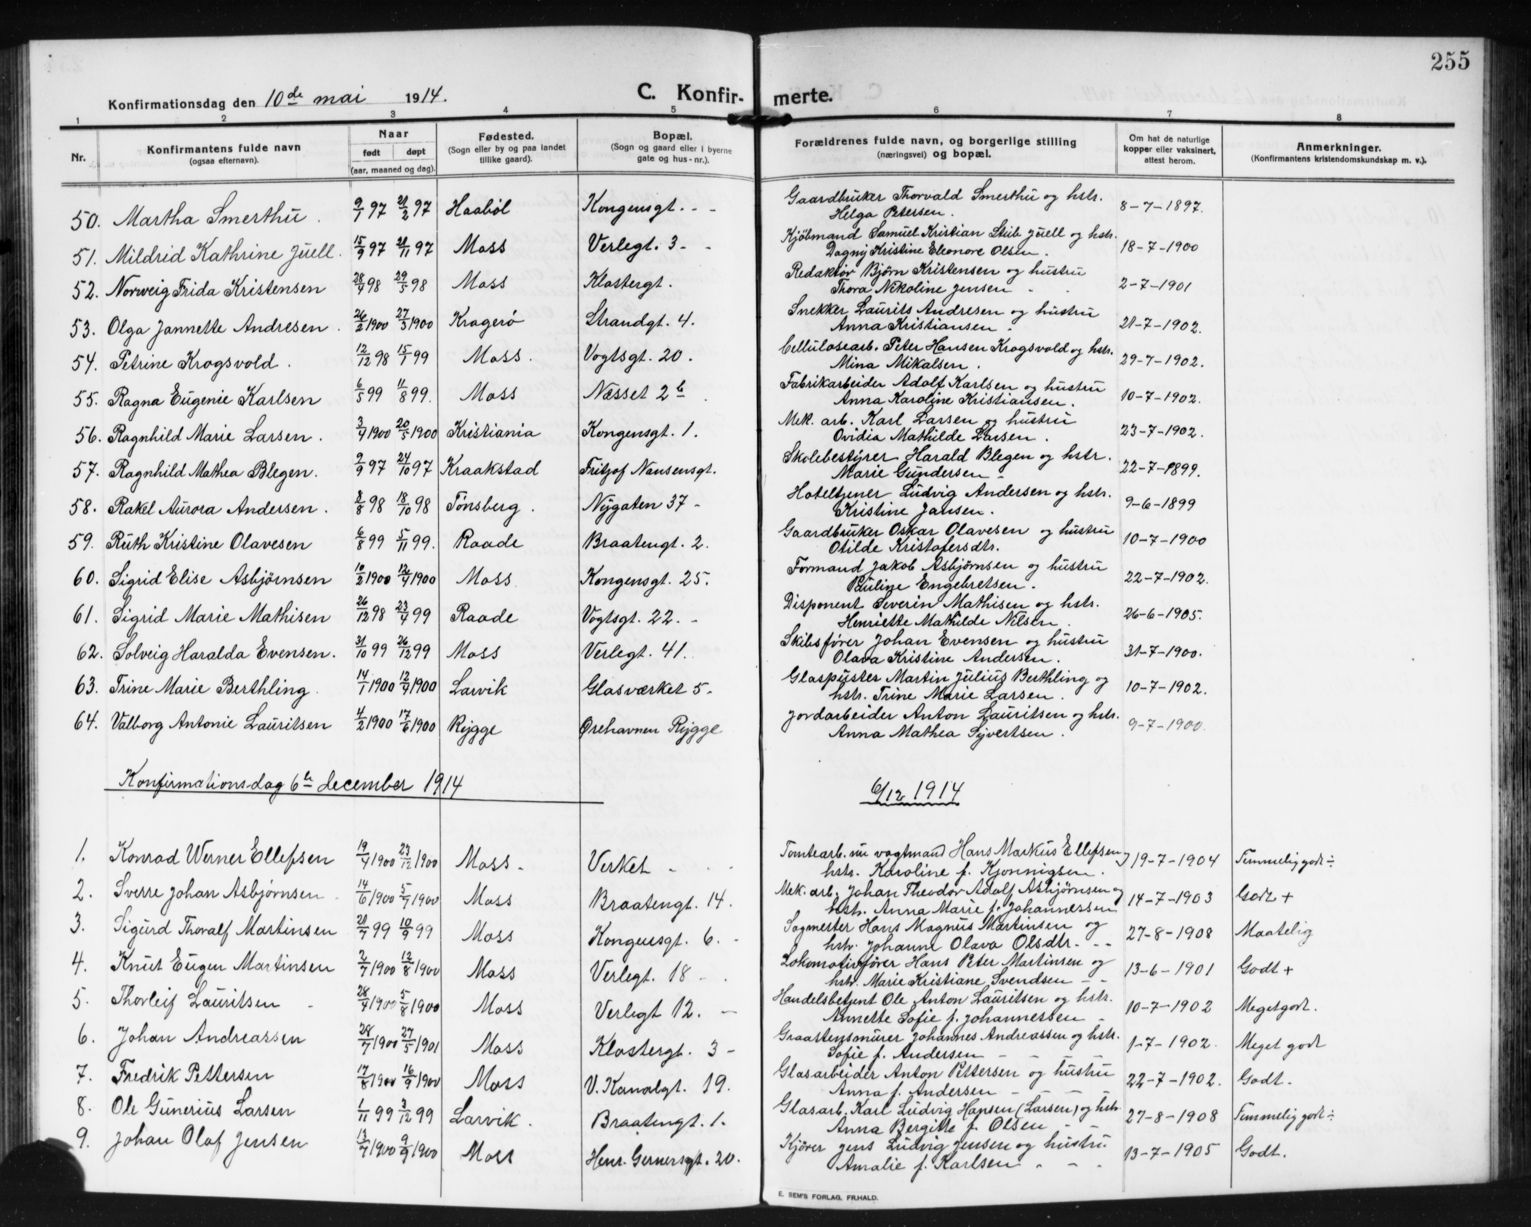 255
Konfirmationsdag den 10de mai 1914.
C. Konfir- merte.
1 2 3 4 5 6 7 8
Nr.
Konfirmantens fulde navn
(ogsaa efternavn).
Naar
født døpt
(aar, maaned og dag).
Fødested.
(Sogn eller by og paa landet
tillike gaard).
Bopæl.
(Sogn og gaard eller i byerne
gate og hus-nr.).
Forældrenes fulde navn, og borgerlige stilling
(næringsvei) og bopæl.
Om hat de naturlige
kopper eller vaksinert,
attest herom.
Anmerkninger.
(Konfirmantens kristendomskundskap m. v.).
50. Martha Smerthu. 9/1 97 21/2 97 Haabøl Kongensgt. - - Gaardbruker Thorvald Smerthu og hstr. 8-7-1897.
Helga Petersen.
51. Mildrid Kathrine Juell. 15/9 97 21/11 97 Moss Verlegt. 3 - - Kjøbmand Samuel Kristian Stub Juell og hstr. 18-7-1900
Dagny Kristine Eleonore Olsen.
52. Norweig Frida Kristensen 28/4 98 29/5 98 Moss Klostergt. Redaktør Bjørn Kristensen og hustru 2-7-1901
Thora Nikoline Jensen - -
53. Olga Jannette Andresen. 26/2 1900 27/5 1900 Kragerø Strandgt. 4. Snekker Laurits Andresen og hustru 21-7-1902.
Anna Kristiansen -
54. Petrine Krogsvold. 12/12 98 15/1 99 Moss. Vogtsgt. 20. Cellulosearb. Peter Hansen Krogsvold og hstr. 29-7-1902.
Mina Mikalsen.
55. Ragna Eugenie Karlsen 6/5 99 11/8 99. Moss Næsset 2b. Fabrikarbeider Adolf Karlsen og hustru 10-7-1902.
Anna Karoline Kristiansen.
56. Ragnhild Marie Larsen. 3/4 1900 20/5 1900 Kristiania Kongensgt. 1. Mek. arb. Karl Larsen og hustru 23-7-1902.
Ovidia Mathilde Larsen.
57. Ragnhild Mathea Blegen. 2/9 97 24/10 97 Kraakstad Fritjof Nansensgt. Skolebestyrer Harald Blegen og hstr. 22-7-1899.
Marie Gundersen -
58. Rakel Aurora Andersen. 8/8 98 18/10 98 Tønsberg. Nygaten 37 - Hoteltjener Ludvig Andersen og hstr. 9-6-1899
Kristine Jansen.
59. Ruth Kristine Olavesen 6/8 99 5/11 99. Raade Braatengt. 2. Gaardbruker Oskar Olavesen og hustru 10-7-1900
Otilde Kristofersdtr.
60. Sigrid Elise Asbjørnsen 10/2 1900 12/4 1900 Moss. Kongensgt. 25. Formand Jakob Asbjørnsen og hustru 22-7-1902.
Pauline Engebretsen.
61. Sigrid Marie Mathisen 26/12 98 23/4 99 Raade Vogtsgt. 22. - Disponent Severin Mathisen og hstr. 26-6-1905.
Henriette Mathilde Nilsen.
62. Solveig Haralda Evensen. 31/10 99 26/12 99 Moss Verlegt. 41. Skibsfører Johan Evensen og hustru 31-7-1900.
Olava Kristine Andersen.
63. Trine Marie Berthling. 14/1 1900 12/9 1900 Larvik Glasværket 5 - Glaspuster Martin Julius Berthling og 10-7-1902.
hstr. Trine Marie Larsen.
64. Valborg Antonie Lauritsen 4/2 1900 17/6 1900 Rygge Ørehavnen Rygge Jordarbeider Anton Lauritsen og hstr. 9-7-1900.
Anna Mathea Syvertsen.
Konfirmationsdag 6te december 1914
6/12 1914
1. Konrad Werner Ellefsen 19/4 1900 23/12 1900 Moss. - Verket - Tomtearb. nu vagtmand Hans Markus Ellefsen og 19-7-1904 Temmelig godt ÷
hstr. Karoline f. Kjønnigsen.
2. Sverre Johan Asbjørnsen. 14/6 1900 5/7 1900 Moss Braatengt. 14. Mek. arb. Johan Theodor Adolf Asbjørnsen og 14-7-1903 Godt +
hstr. Anna Marie f. Johannessen
3. Sigurd Thoralf Martinsen 20/7 99 10/9 99 Moss Kongensgt. 6. - Sagmester Hans Magnus Martinsen og 27-8-1908 Maatelig
hstr. Johanne Olava Olsdtr. - -
4. Knut Eugen Martinsen 2/7 1900 12/8 1900 Moss Verlegt. 18 - Lokomotivfører Hans Peter Martinsen og 13-6-1901 Godt +
hstr. Marie Kristiane Svendsen - -
5. Thorleif Lauritsen - 28/4 1900 5/8 1900 Moss Verlegt 12. - Handelsbetjent Ole Anton Lauritsen og hstr. 10-7-1902 Meget godt.
Annette Sofie f. Johannessen -
6. Johan Andreassen 28/7 1900 27/5 1901 Moss Klostergt. 3 - Graastensmurer Johannes Andreassen og hstr. 1-7-1902. Meget godt
Sofie f. Andersen - - -
7. Fredrik Pettersen 17/8 1900 16/9 1900 Moss V. Kanalgt. 19. Glasarbeider Anton Pettersen og hustru 22-7-1902. Godt.
Anna f. Andersen - -
8. Ole Gunerius Larsen 1/11 99 3/12 99 Larvik. Braatengt. 1. Glasarb. Karl Ludvig Hansen (Larsen) og hstr. 27-8-1908 Temmelig godt ÷
Anna Bergitte f. Olsen -
9. Johan Olaf Jensen 13/7 1900 9/9 1900 Moss Henr. Gernersgt. 20. Kjører Jens Ludvig Jensen og hustru 13-7-1905 Godt.
Amalie f. Karlsen - - -
E. SEM'S FORLAG, FR.HALD.